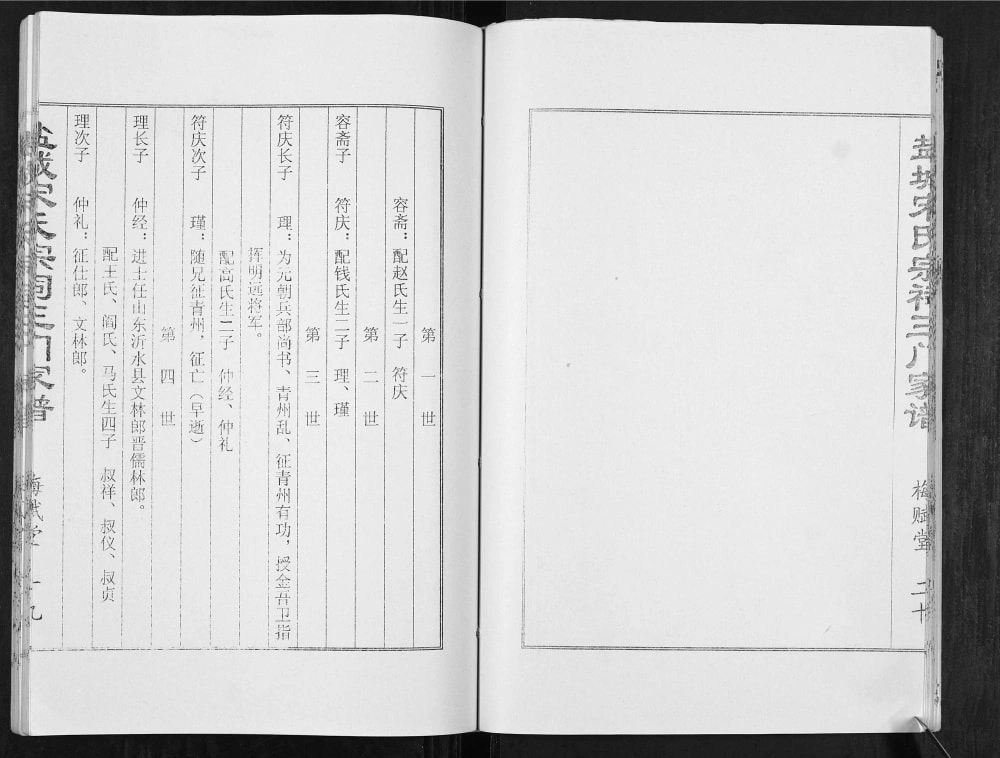 盐城宋氏宗祠三门家谱 梅赋堂 二十
第一世
容斋：配赵氏生一子 符庆
第二世
容斋子 符庆：配钱氏生二子 理、瑾
第三世
符庆长子 理：为元朝兵部尚书、青州乱、征青州有功，授金吾卫指
挥明远将军。
配高氏生二子 仲经、仲礼
符庆次子 瑾：随兄征青州，征亡（早逝）
第四世
理长子 仲经：进士任山东沂水县文林郎晋儒林郎。
配王氏、阎氏、马氏生四子 叔祥、叔仪、叔贞
理次子 仲礼：征仕郎、文林郎。
盐城宋氏宗祠三门家谱 梅赋堂 十九